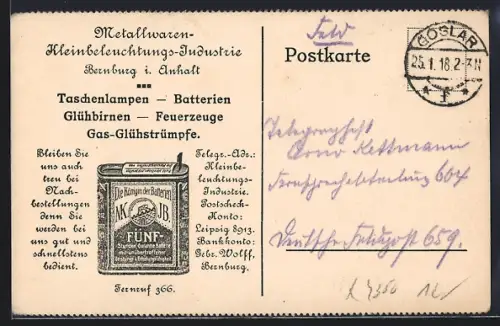 Metallwaren-
Kleinbeleuchtungs-Industrie
Bernburg i. Anhalt
Taschenlampen — Batterien
Glühbirnen — Feuerzeuge
Gas-Glühstrümpfe.
Bleiben Sie
uns auch
treu bei
Nach-
bestellungen
denn Sie
werden bei
uns gut und
schnellstens
bedient.
Die Königin der Batterien
MK JB.
FÜNF
Telegr.-Adr.:
Kleinbe-
leuchtungs-
Industrie.
Postscheck-
Konto:
Leipzig 8913.
Bankkonto:
Gebr. Wolff,
Bernburg.
Fernruf 366.
Feld
Postkarte
GOSLAR
25.1.18.2-3N
* 1 *
Telegraphist
Kettmann
604
Deutsche Feldpost 659.